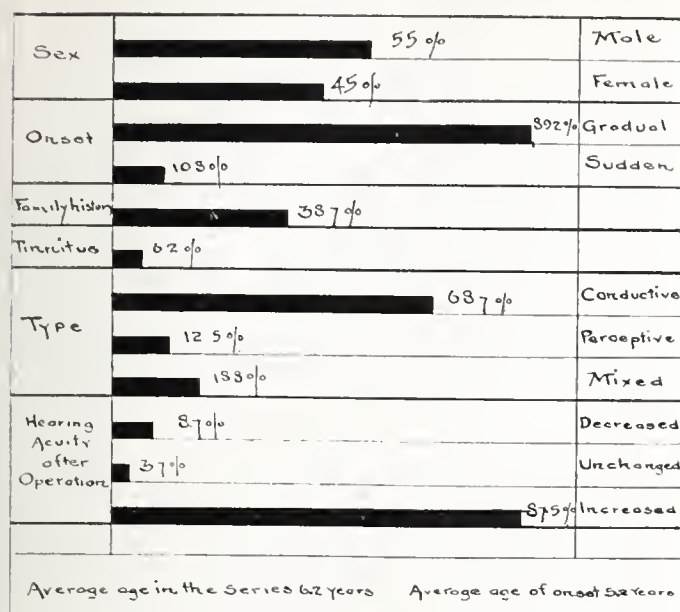 Sex 55% Male
45% Female
Onset 892% Gradual
108% Sudden
Family history 387%
Tinnitus 62%
Type 687% Conductive
125% Perceptive
188% Mixed
Hearing Acuity after Operation 87% Decreased
37% Unchanged
875% Increased
Average age in the Series 6.2 years Average age of onset years